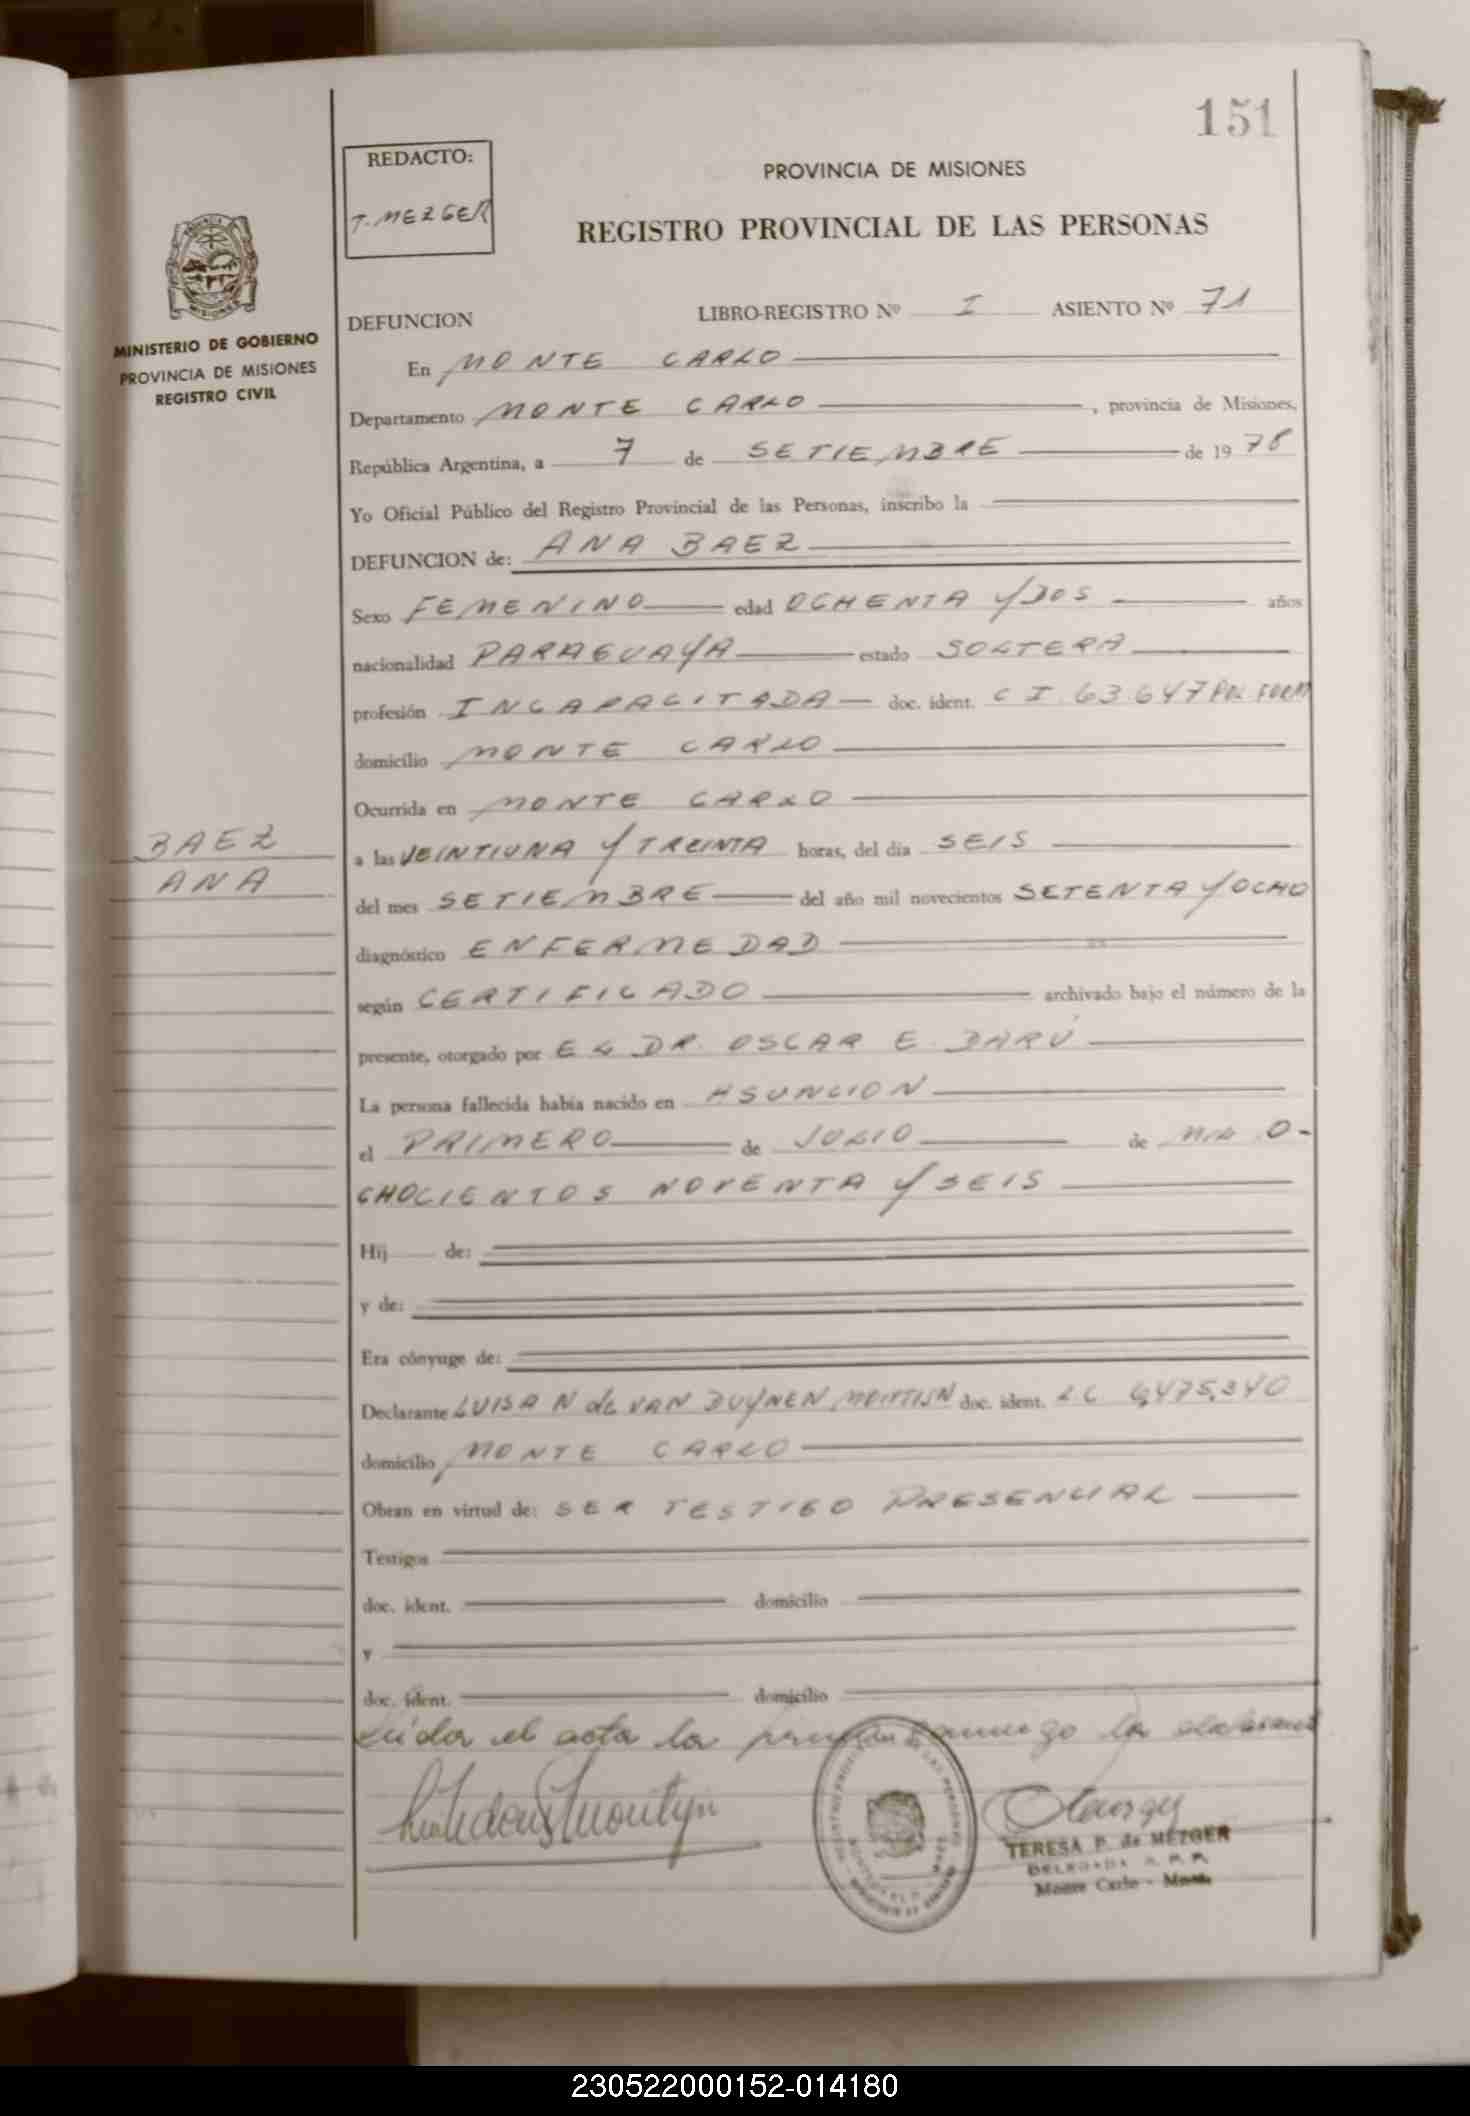 151
REDACTO:
T. MEZGER
PROVINCIA DE MISIONES
REGISTRO PROVINCIAL DE LAS PERSONAS
MINISTERIO DE GOBIERNO
PROVINCIA DE MISIONES
REGISTRO CIVIL
DEFUNCION LIBRO-REGISTRO Nº I ASIENTO Nº 71
En MONTE CARLO
Departamento MONTE CARLO, provincia de Misiones,
República Argentina, a 7 de SETIEMBRE de 1978
Yo Oficial Público del Registro Provincial de las Personas, inscribo la
DEFUNCION de: ANA BAEZ
Sexo FEMENINO edad OCHENTA Y DOS años
nacionalidad PARAGUAYA estado SOLTERA
profesión INCAPACITADA doc. ident. C I 63.647 POL FORM
domicilio MONTE CARLO
Ocurrida en MONTE CARLO
BAEZ
ANA
a las VEINTIUNA Y TREINTA horas, del día SEIS
del mes SETIEMBRE del año mil novecientos SETENTA Y OCHO
diagnóstico ENFERMEDAD
según CERTIFICADO archivado bajo el número de la
presente, otorgado por EL DR. OSCAR E. DARÚ
La persona fallecida había nacido en ASUNCION
el PRIMERO de JULIO de MIL O-
CHOCIENTOS NOVENTA Y SEIS
Hij de:
y de:
Era cónyuge de:
Declarante LUISA N de VAN DUYNEN MONTIJN doc. ident. LC 6,475,340
domicilio MONTE CARLO
Obran en virtud de: SER TESTIGO PRESENCIAL
Testigos
doc. ident. domicilio
y
doc. ident. domicilio
Leída el acta la firman conmigo la declarante
TERESA P. de MEZGER
DELEGADA R. P. P.
Monte Carlo - Mnes.
230522000152-014180